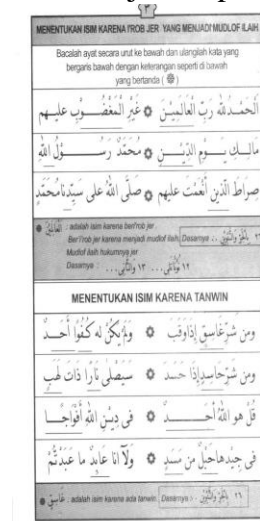 ﴿٣﴾
MENENTUKAN ISIM KARENA I'ROB JER YANG MENJADI MUDLOF ILAIH
Bacalah ayat secara urut ke bawah dan ulangilah kata yang
bergaris bawah dengan keterangan seperti di bawah
yang bertanda ( ❁ )
الْحَمْدُ لِلّٰهِ رَبِّ الْعَالَمِيْنَ ❁ غَيْرِ الْمَغْضُوْبِ عَلَيْهِمْ
مَالِكِ يَوْمِ الدِّيْنِ ❁ مُحَمَّدٌ رَسُوْلُ اللهِ
صِرَاطَ الَّذِيْنَ أَنْعَمْتَ عَلَيْهِمْ ❁ صَلَّى اللهُ عَلَى سَيِّدِنَا مُحَمَّدٍ
adalah isim karena beri'rob jer
Ber'i'rob jer karena menjadi mudlof ilaih, Dasarnya ...
Mudlof ilaih hukumnya jer
Dasarnya
MENENTUKAN ISIM KARENA TANWIN
وَمِنْ شَرِّ غَاسِقٍ إِذَا وَقَبَ ❁ وَلَمْ يَكُنْ لَهُ كُفُوًا أَحَدٌ
وَمِنْ شَرِّ حَاسِدٍ إِذَا حَسَدَ ❁ سَيَصْلَى نَارًا ذَاتَ لَهَبٍ
قُلْ هُوَ اللهُ أَحَدٌ ❁ فِى دِيْنِ اللهِ أَفْوَاجًا
فِى جِيْدِهَا حَبْلٌ مِنْ مَسَدٍ ❁ وَلَا أَنَا عَابِدٌ مَا عَبَدْتُمْ
غَاسِقٍ : adalah isim karena ada tanwin. Dasarnya :